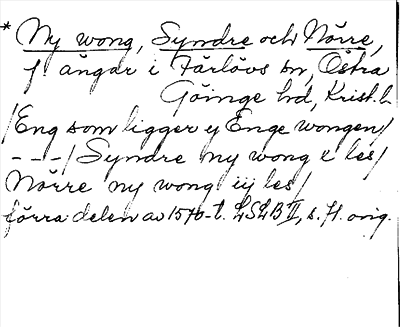 * Ny wong, Syndre och Nörre,
f. ängar i Färlövs sn, Östra
Göinge hd, Krist. l.
/Eng som ligger y Enge wongen/
---/Syndre ny wong x les/
Nörre ny wong iij les/
förra delen av 1570-t. LSLB II, s. 71. orig.